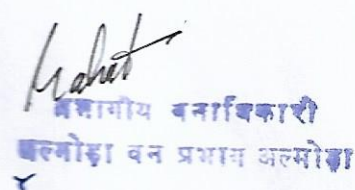 प्रभागीय वनाधिकारी
अल्मोड़ा वन प्रभाग अल्मोड़ा